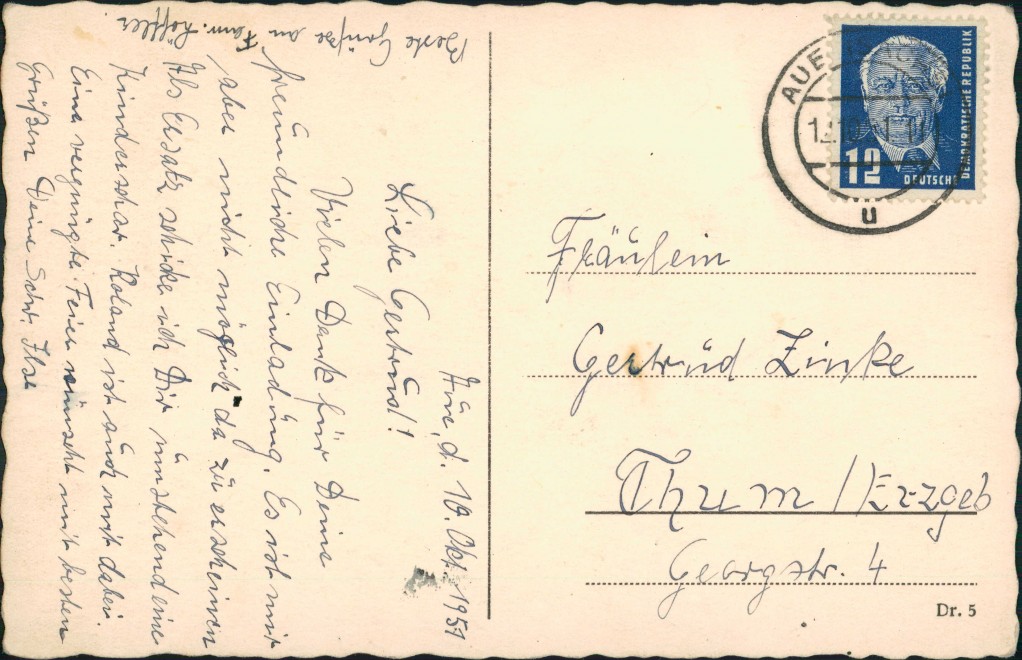 Aue, d. 10. Okt. 1951
Liebe Gertrud!
Vielen Dank für Deine
freundliche Einladung. Es ist mir
aber nicht möglich da zu erscheinen
Als Ersatz schicke ich Dir umstehend eine
Kinderschar. Roland ist auch mit dabei.
Eine vergnügte Feier wünscht mit besten
Grüßen Deine Schw. Ilse
Beste Grüße an Fam. Löffler.
AUE
12
DEUTSCHE
DEMOKRATISCHE REPUBLIK
u
Fräulein
Gertrud Zinke
Thum / Erzgeb
Georgstr. 4
Dr. 5